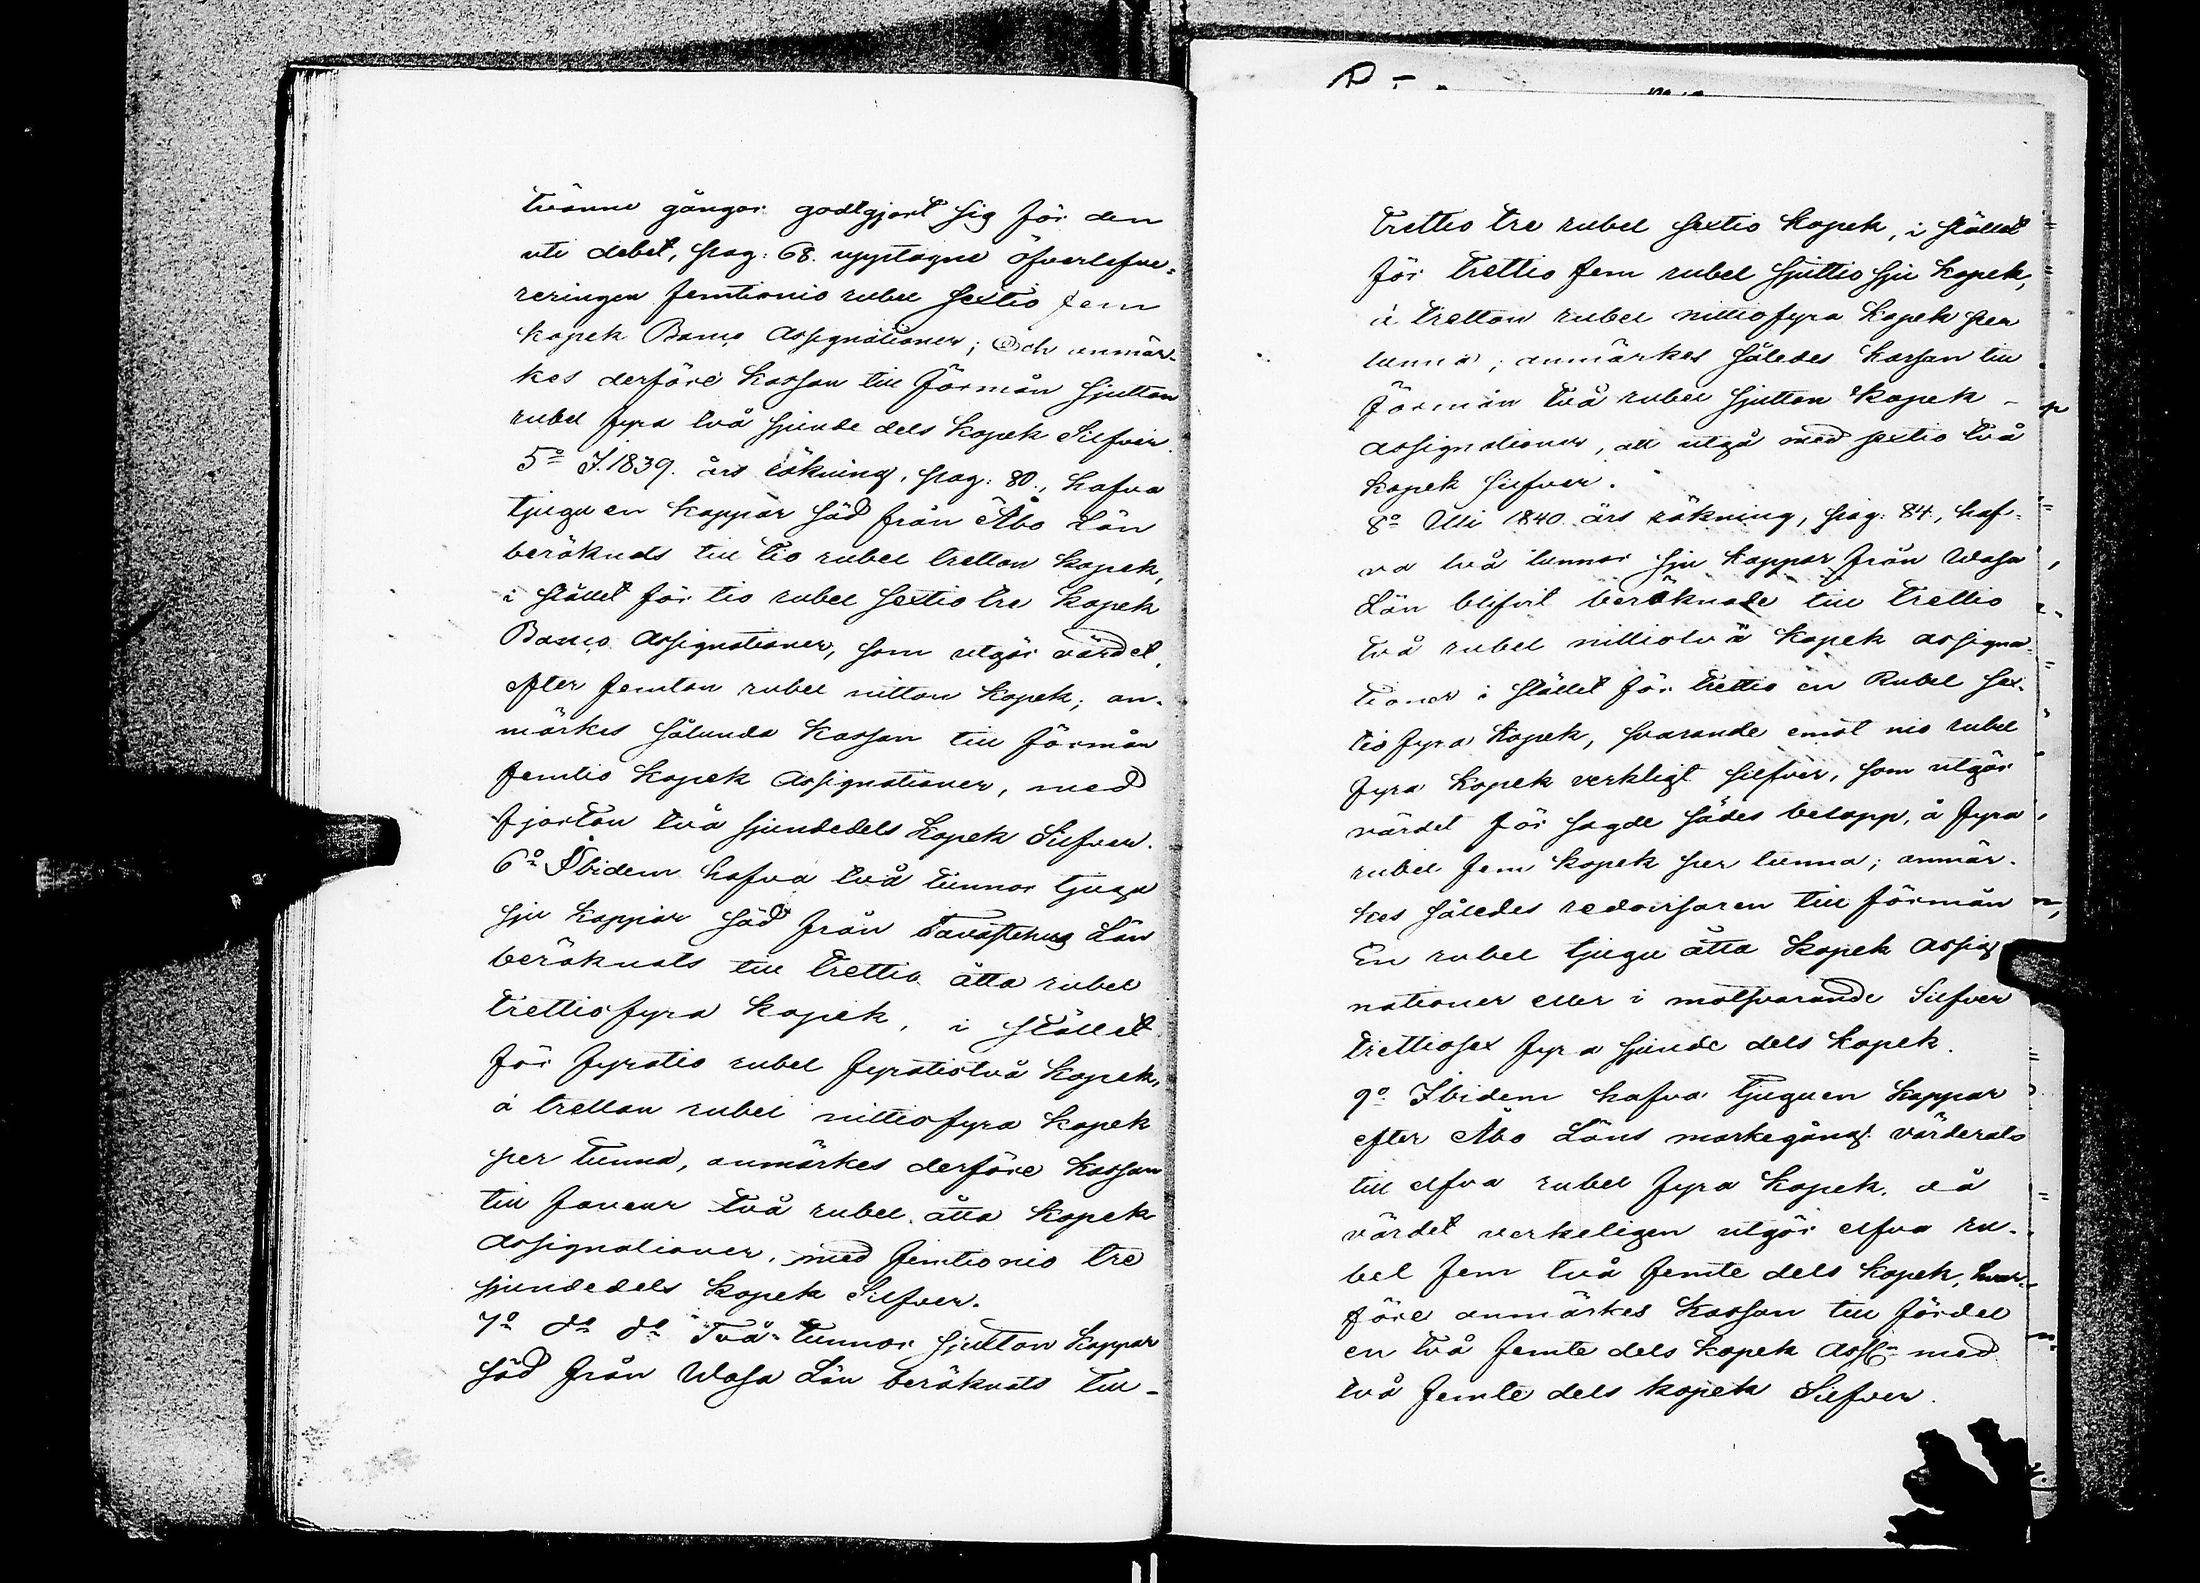 tvänne gångor godtgjort sig för den
uti debet, pag: 68. upptagne öfverlefve-
reringen femtionio rubel sextio fem
kopek Banco Assignationer; Och anmär-
kes derföre Kassan till Förmån sjutton
rubel fyra två sjunde dels Kopek Silfver.
5º I 1839. års räkning, pag: 80., hafva
tjuguen kappar säd från Åbo Län
beräknats till tio rubel tretton kopek,
i stället för tio rubel sextio tre kopek
Banco Assignationer, som utgör värdet,
efter femton rubel nitton kopek; an-
märkes sålunda Kassan till förmån
femtio kopek Assignationer, med
fjorton två sjundedels kopek Silfver.
6º Ibidem hafva två tunnor tjugu
sju kappar säd från Tavastehus Län
beräknats till trettio åtta rubel
trettiofyra kopek, i stället
för fyratio rubel fyratiotvå kopek,
à tretton rubel nittiofyra kopek
per tunna, anmärkes derföre Kassan
till faveur två rubel åtta kopek
Assignationer, med femtionio tre
sjundedels kopek Silfver.
7º dº dº Två tunnor sjutton kappar
säd från Wasa Län beräknats till
trettio tre rubel sextio kopek, i stället
för trettio fem rubel sjuttio sju kopek,
à tretton rubel nittiofyra kopek per
tunna; anmärkes således Kassan till
Förmån två rubel sjutton kopek
assignationer, att utgå med sextio två
kopek silfver.
8º Uti 1840 års räkning, pag: 84., haf-
va två tunnor sju kappar från Wasa
Län blifvit beräknade till trettio
två rubel nittiotvå kopek assigna-
tioner i stället för trettio en Rubel sex-
tio fyra kopek, svarande emot nio rubel
fyra kopek verkligt silfver, som utgör
värdet för sagde sädes belopp, à fyra
rubel fem kopek per tunna; anmär-
kes således redovisaren till förmån
En rubel tjugu åtta kopek Assig-
nationer eller i motsvarande Silfver
trettiosex fyra sjunde dels kopek.
9º Ibidem hafva tjuguen kappar
efter Åbo Läns markegång värderats
till elfva rubel fyra kopek, då
värdet verkeligen utgör elfva ru-
bel fem två femte dels kopek, hvar-
före anmärkes Kassan till fördel
en två femte dels kopek Ass. med
två femte dels kopek Silfver.